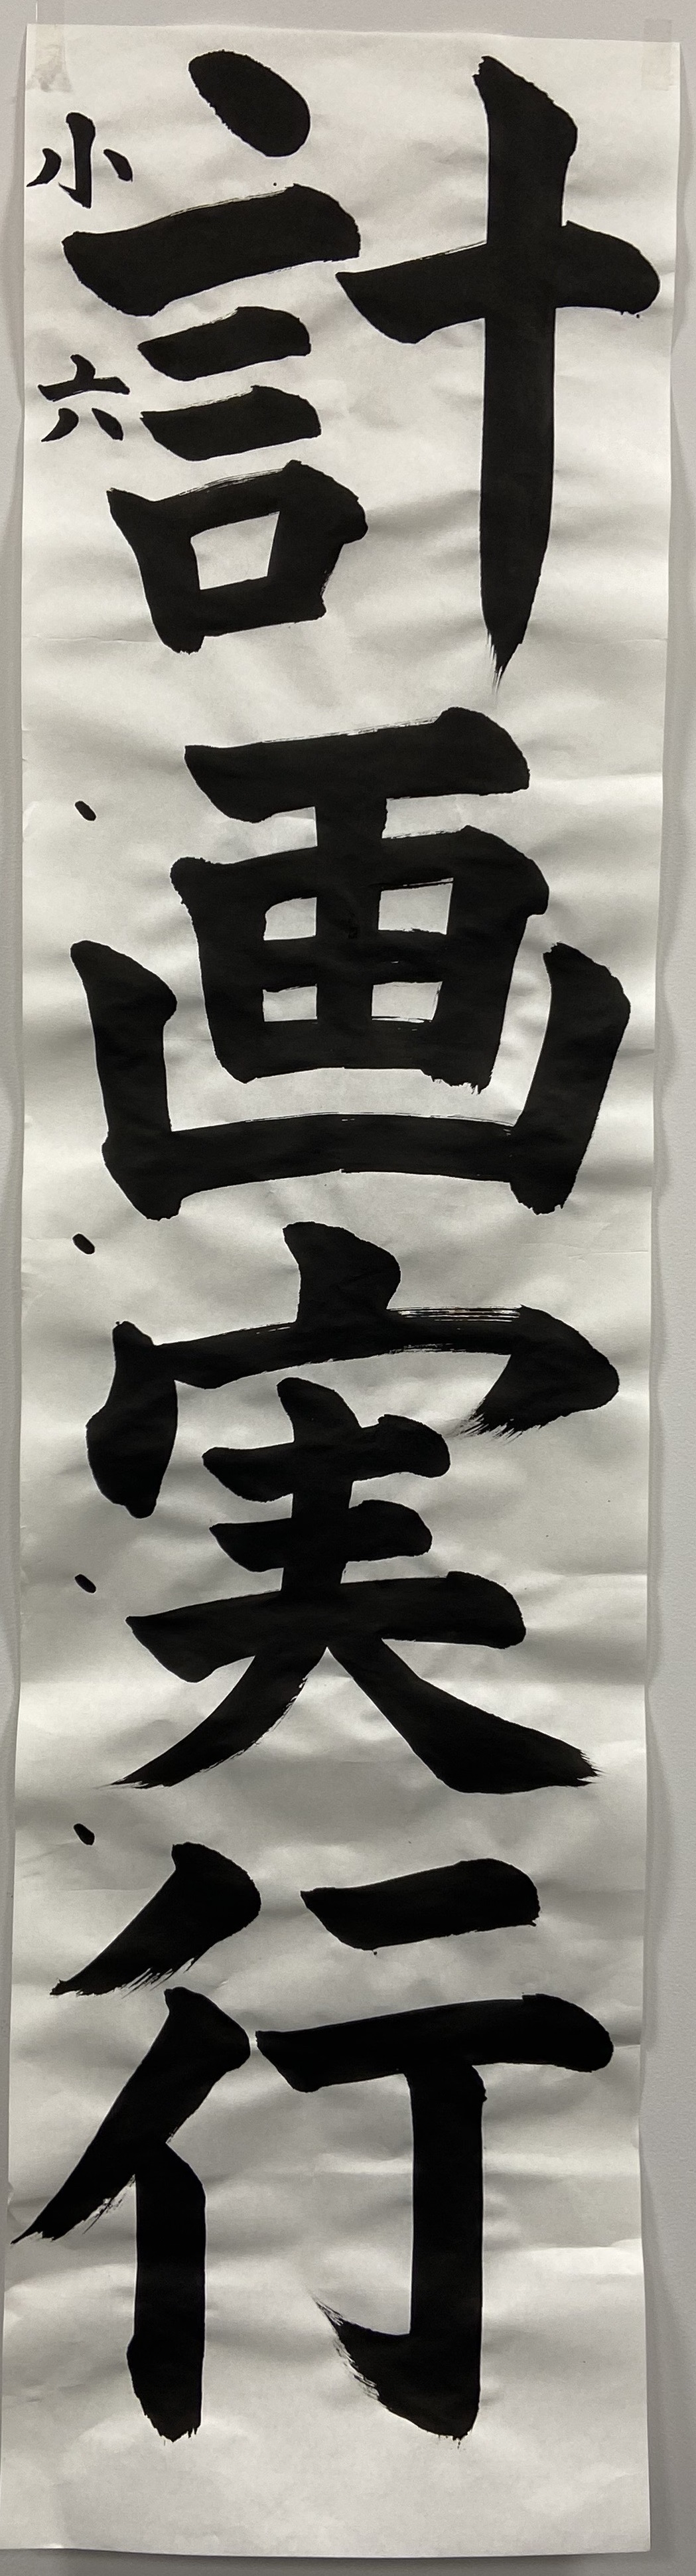 計画実行
小六